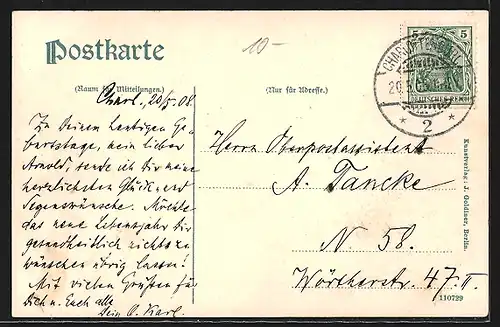 Postkarte
10-
5 5
CHARLOTTENBURG
20.5.08
DEUTSCHES REICH
* 2 *
(Raum für Mitteilungen.)
(Nur für Adresse.)
Charl., 20/5. 08.
Zu Deinem heutigen Ge-
burtstage, mein lieber
Arnold, sende ich Dir meine
herzlichsten Glück- und
Segenswünsche. Möchte
das neue Lebensjahr Dir
gesundheitlich nichts zu
wünschen übrig lassen!
Mit vielen Grüßen für
Dich u. Euch alle
Dein O. Karl.
Herrn Oberpostassistent
A. Tancke
N 58.
Wörtherstr. 47. II.
Kunstverlag: J. Goldiner, Berlin.
110729